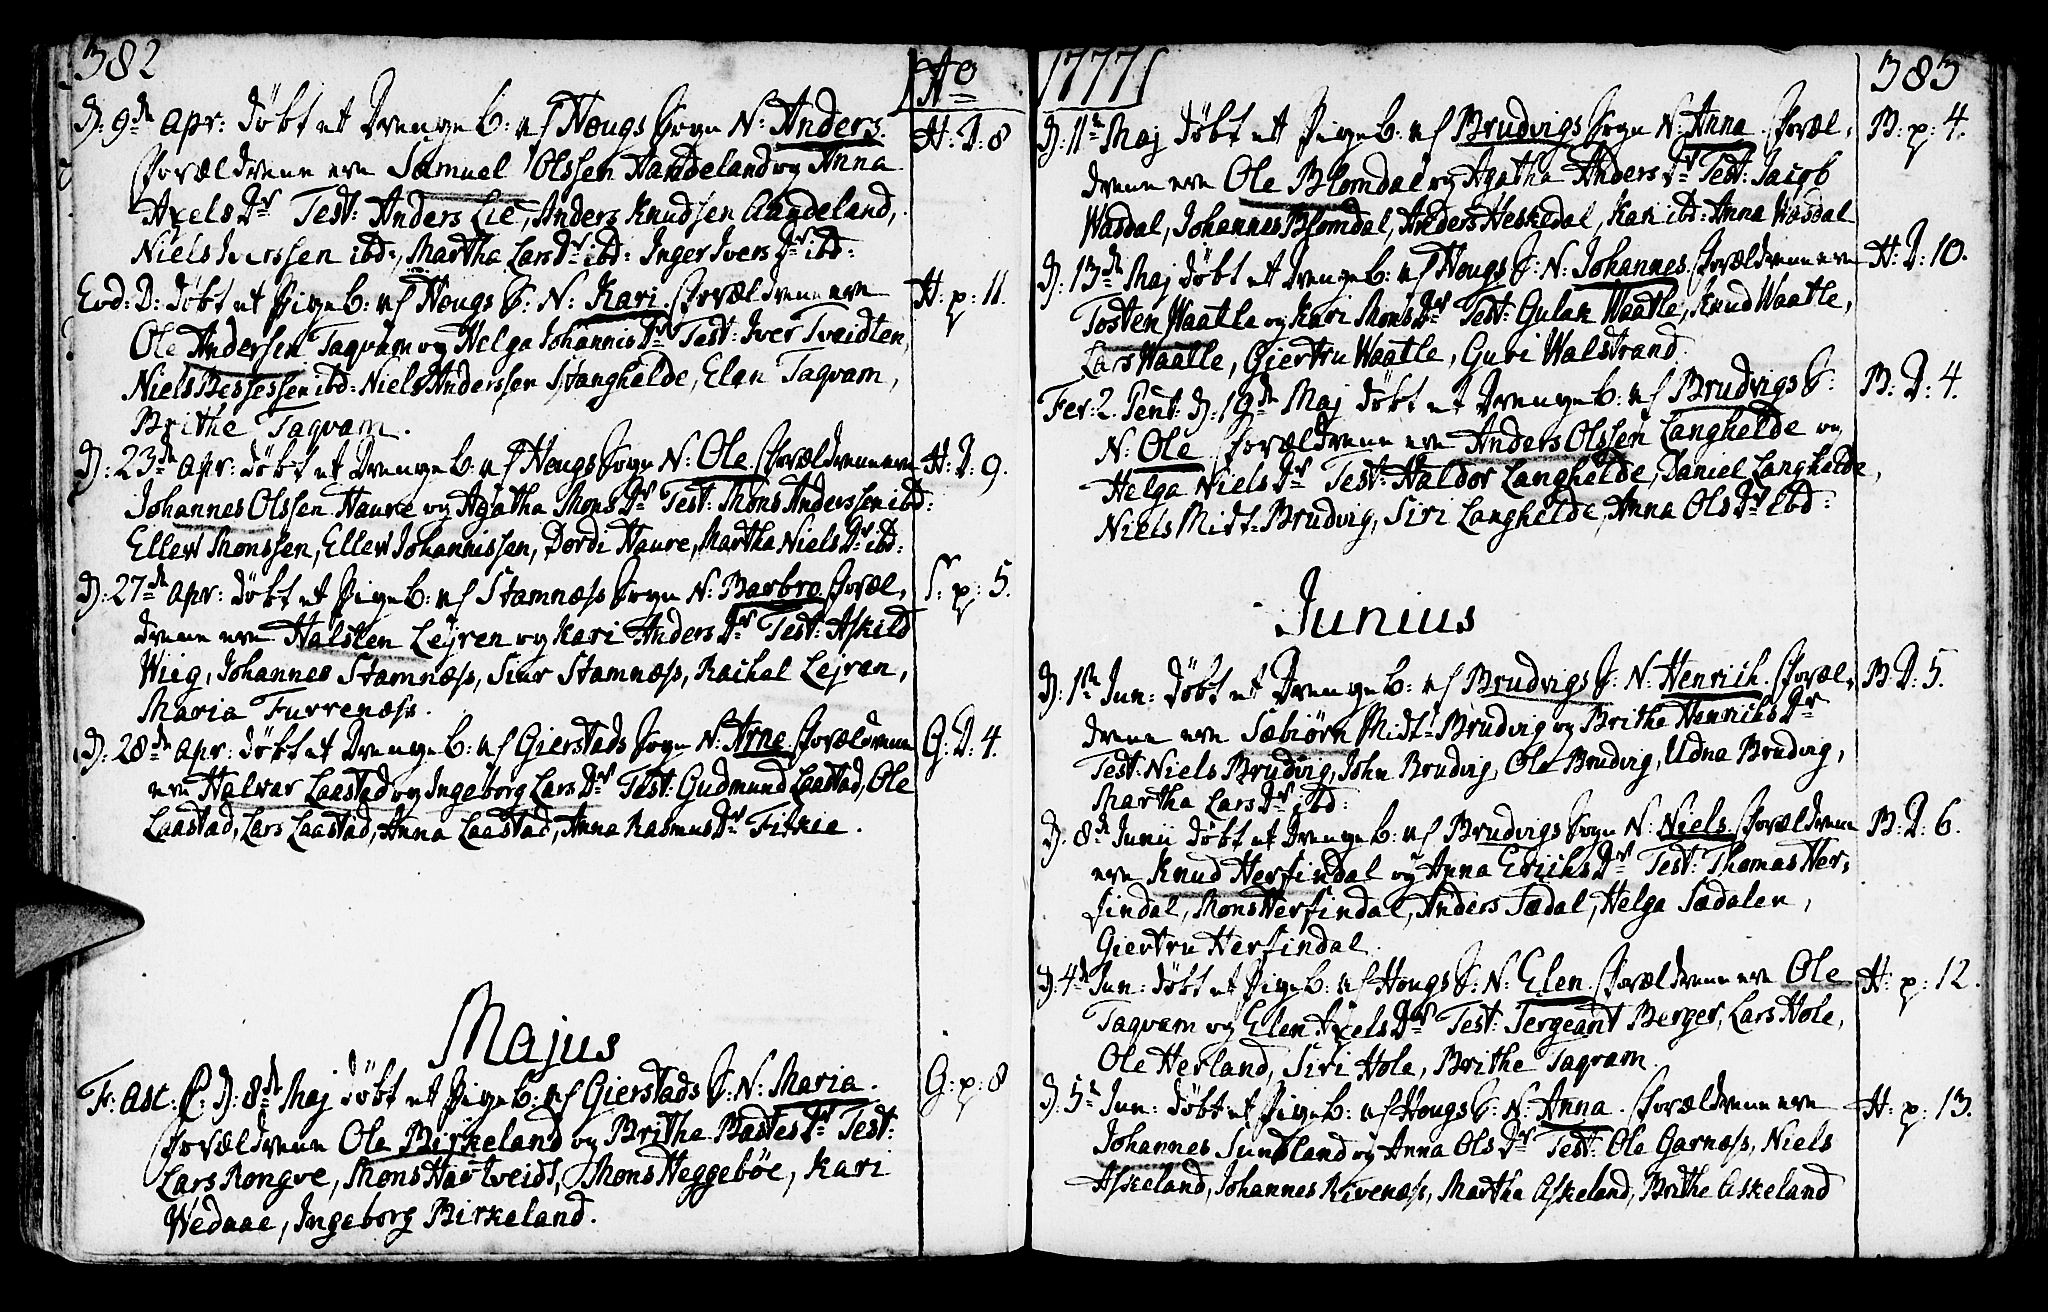 382
Ao
D: 9de Apr: døbt et Drengeb: af Hougs Sogn N: Anders.
H: D: 8
Forældrene ere Samuel Olssen Aandeland og Anna
Axels Dr Test: Anders Lie, Anders Knudsen Aandeland,
Niels Iverssen ibd:, Martha Lars Dr ibd: Inger Ivers Dr ibd:
Eod: D: døbt et Pigeb: af Hougs S: N: Kari. Forældrene ere
H: p: 11.
Ole Andersen Taqvam og Helga Johannis Dr Test: Iver Tveidten,
Niels ibd: Niels Anderssen Stanghelde, Elen Taqvam,
Brithe Taqvam.
D: 23de Apr: døbt et Drengeb: af Hougs Sogn N: Ole. Forældrene ere
H: D: 9.
Johannes Olssen Haure og Agatha Mons Dr Test: Mons Anderssen ibd:
Ellew Monssen, Ellew Johannissen, Dordi Haure, Martha Niels Dr ibd:
D: 27de Apr: døbt et Pigeb: af Stamnæss Sogn N: Barbro. Foræl,
S: p: 5.
drene ere Halsten Lejren og Kari Anders Dr Test: Askild
Wiig, Johannes Stamnæss, Siur Stamnæss, Rachel Lejren,
Maria Furrenæss.
D: 28de Apr: døbt et Drengeb: af Gierstads Sogn N: Arne. Forældrene
G: D: 4.
ere Halvar Laastad og Ingeborg Lars Dr Test: Gudmund Laastad, Ole
Laastad, Lars Laastad, Anna Laastad, Anna Rasmus Dr Fitkie.
Majus
F: Asc: D: 8de Maj døbt et Pigeb: af Gierstads S: N: Maria.
G: p: 8
Forældrene Ole Birkeland og Brithe Bastes Dr Test:
Lars Rongve, Mons Hartveidt, Mons Heggebøe, Kari
Wedaae, Ingeborg Birkeland.
1777
383
D: 11te Maj døbt et Pigeb: af Brudvigs Sogn N: Anna. Foræl,
B: p: 4.
drene ere Ole Blomdal og Agatha Anders Dr Test: Jacob
Wasdal, Johannes Blomdal, Anders Heskedal, Kari ibd: Anna Wasdal
D: 13de Maj døbt et Drengeb: af Hougs S: N: Johannes. Forældrene ere
H: D: 10.
Tosten Waatle og Kari Mons Dr Test: Gulak Waatle, Knud Waatle,
Lars Waatle, Giertru Waatle, Guri Walstrand.
Fer: 2. Pent: D: 19de Maj døbt et Drengeb: af Brudvigs S:
B: D: 4.
N: Ole. Forældrene ere Anders Olssen Langhelde og
Helga Niels Dr Test: Haldor Langhelde, Daniel Langhelde,
Niels Midt-Brudvig, Siri Langhelde, Anna Ols Dr ibd:
Junius
D: 1te Jun: døbt et Drengeb: af Brudvigs S: N: Henrich. Foræl,
B: D: 5.
drene ere Sæbiørn Midt-Brudvig og Brithe Henrichs Dr
Test: Niels Brudvig, John Brudvig, Ole Brudvig, Udna Brudvig,
Martha Lars Dr ibd:
D: 8de Junii døbt et Drengeb: af Brudvigs Sogn N: Niels. Forældrene
B: D: 6.
ere Knud Herfindal og Anna Erichs Dr Test: Thomas Her,
findal, Mons Herfindal, Anders Sædal, Helga Sædalen,
Giertru Herfindal.
D: 4de Jun: døbt et Pigeb: af Hougs S: N: Elen. Forældrene ere Ole
H: p: 12.
Taqvam og Elen Axels Dr Test: Sergeant Berger, Lars Hole,
Ole Herland, Siri Hole, Brithe Taqvam.
D: 5te Jun: døbt et Pigeb: af Hougs S: N: Anna. Forældrene ere
H: p: 13.
Johannes Sundland og Anna Ols Dr Test: Ole Garnæss, Niels
Askeland, Johannes Rivenæss, Martha Askeland, Brithe Askeland